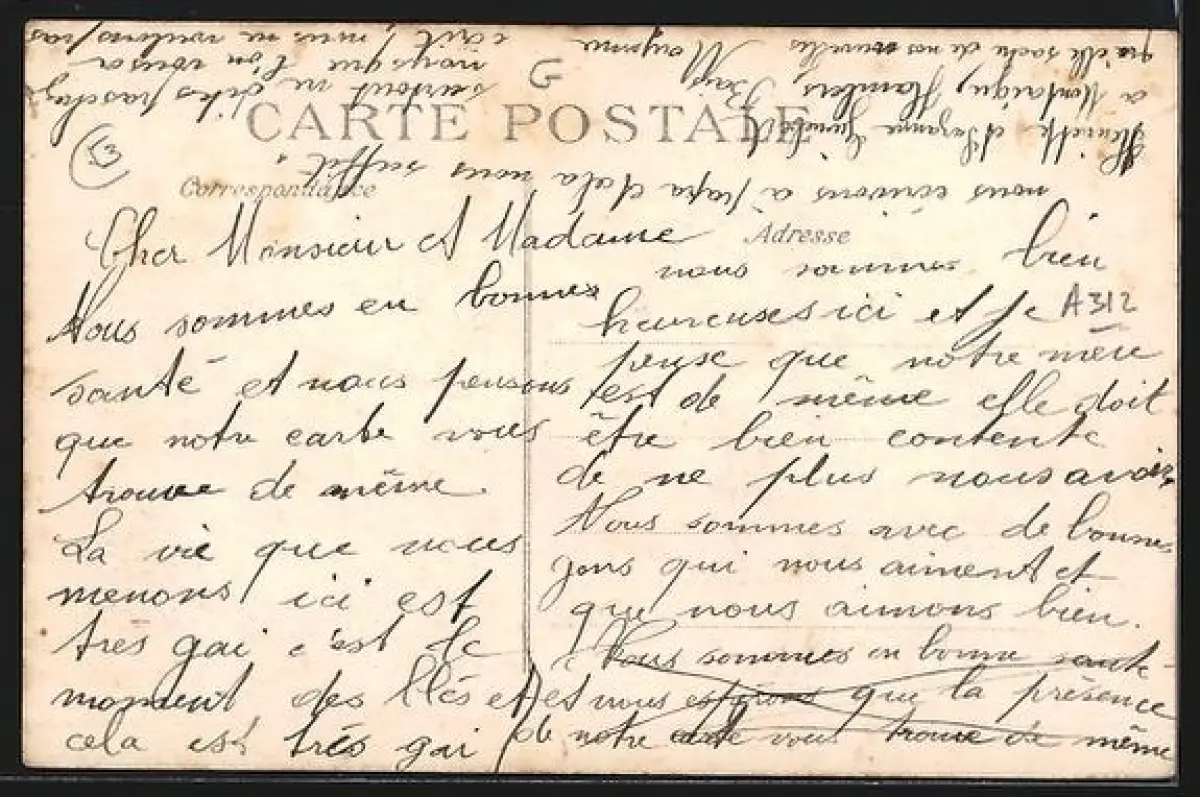 CARTE POSTALE
Correspondance
Adresse
G
53
A312
Cher Monsieur et Madame
Nous sommes en bonnes
santé et nous pensons
que notre carte vous
trouve de même.
La vie que nous
menons ici est
très gai c'est le
moment des blés et
cela est très gai
nous sommes bien
heureuses ici et je
pense que notre mère
est de même elle doit
être bien contente
de ne plus nous avoir.
Nous sommes avec de bonnes
gens qui nous aiment et
que nous aimons bien.
Nous sommes en bonne santé
et nous espérons que la présence
de notre carte vous trouve de même
surtout ne dites pas chez
nous que l'on vous a
écrit, nous ne voulons pas
qu'elle sache de nos nouvelles
nous écrivons à papa et cela nous suffit.
Henriette et Suzanne
à Montaigu, Hambers, Bais Mayenne